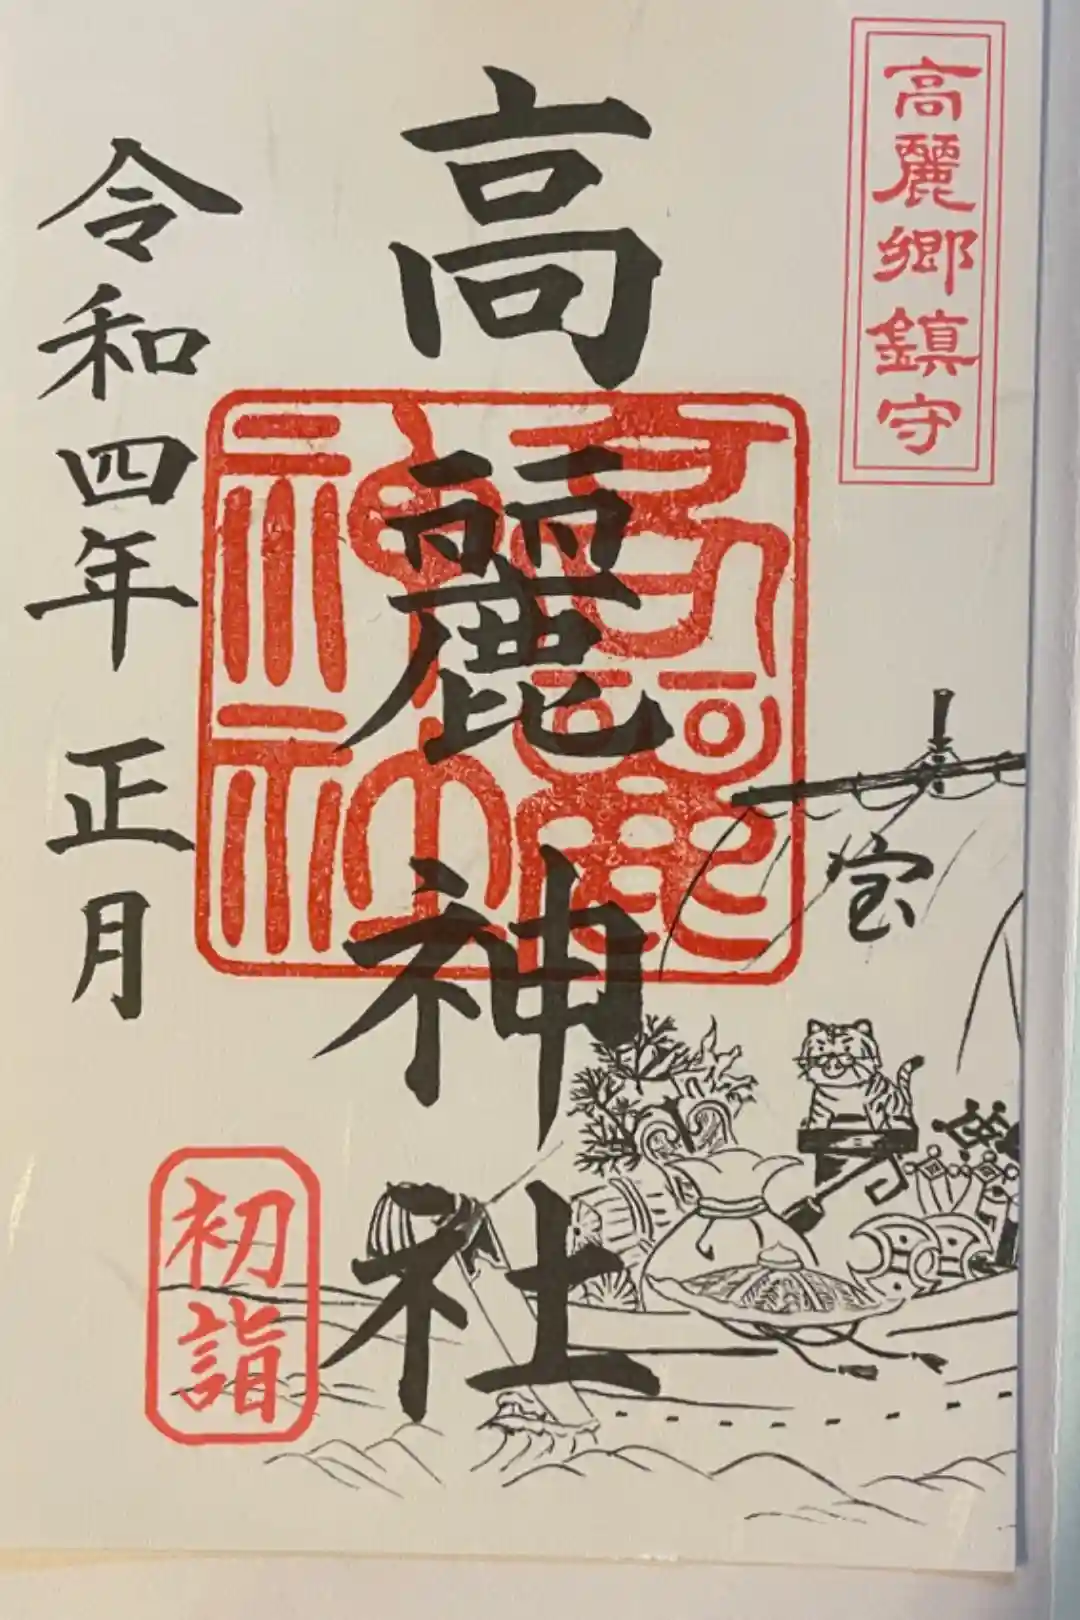 高麗郷鎮守
高麗神社
令和四年 正月
宝
初詣